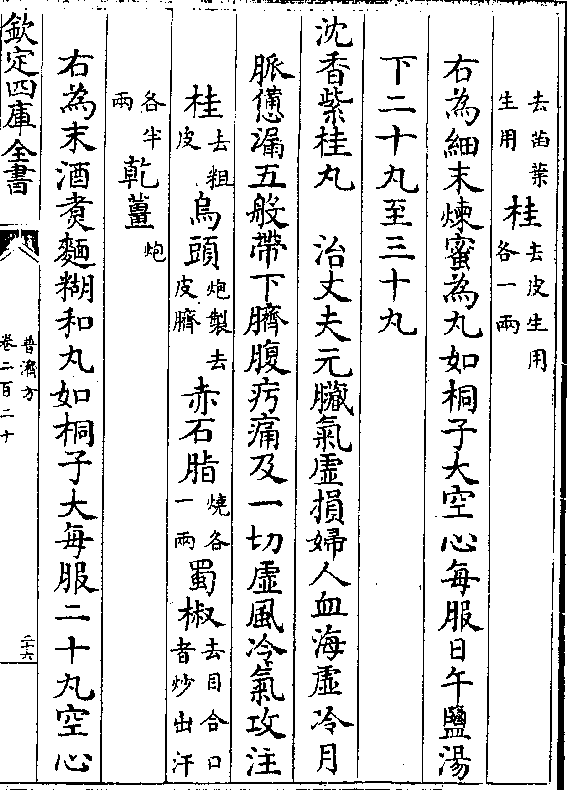 去苗葉生用桂去皮生用各一兩
右為細末煉蜜為丸如桐子大空心每服日午鹽湯
下二十丸至三十丸
沈香紫桂丸　治丈夫元臟氣虛損婦人血海虛冷月
脈僽漏五般帶下臍腹疞痛及一切虛風冷氣攻注
桂去粗皮烏頭炮製去皮臍赤石脂燒各一兩蜀椒去目合口者炒出汗
各半兩乾薑炮
右為末酒煮麵糊和丸如桐子大每服二十丸空心
欽定四庫全書
普濟方
卷二百二十
三十六